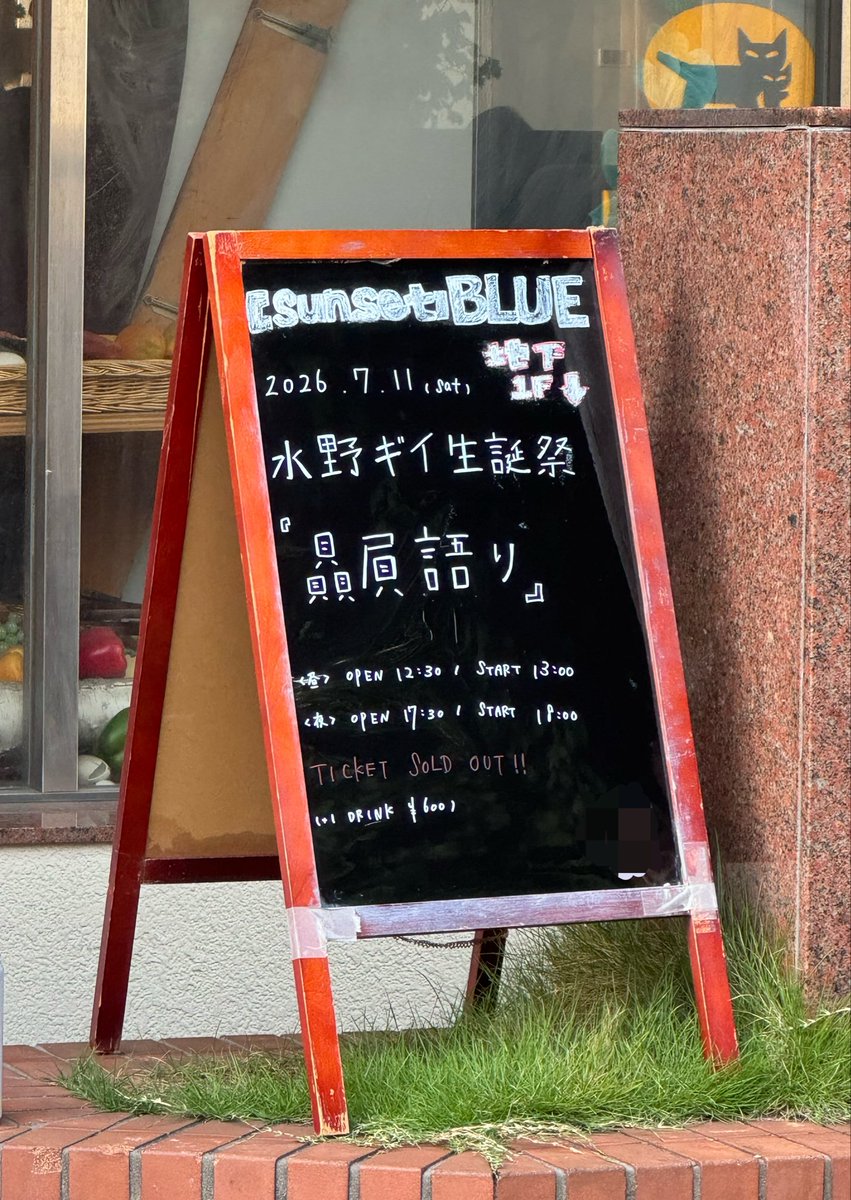 [sunset]BLUE
地下
1F↓
2026.7.11(sat)
水野ギイ生誕祭
『贔屓語り』
<昼> OPEN 12:30 / START 13:00
<夜> OPEN 17:30 / START 18:00
TICKET SOLD OUT!!
(+1 DRINK ¥600)